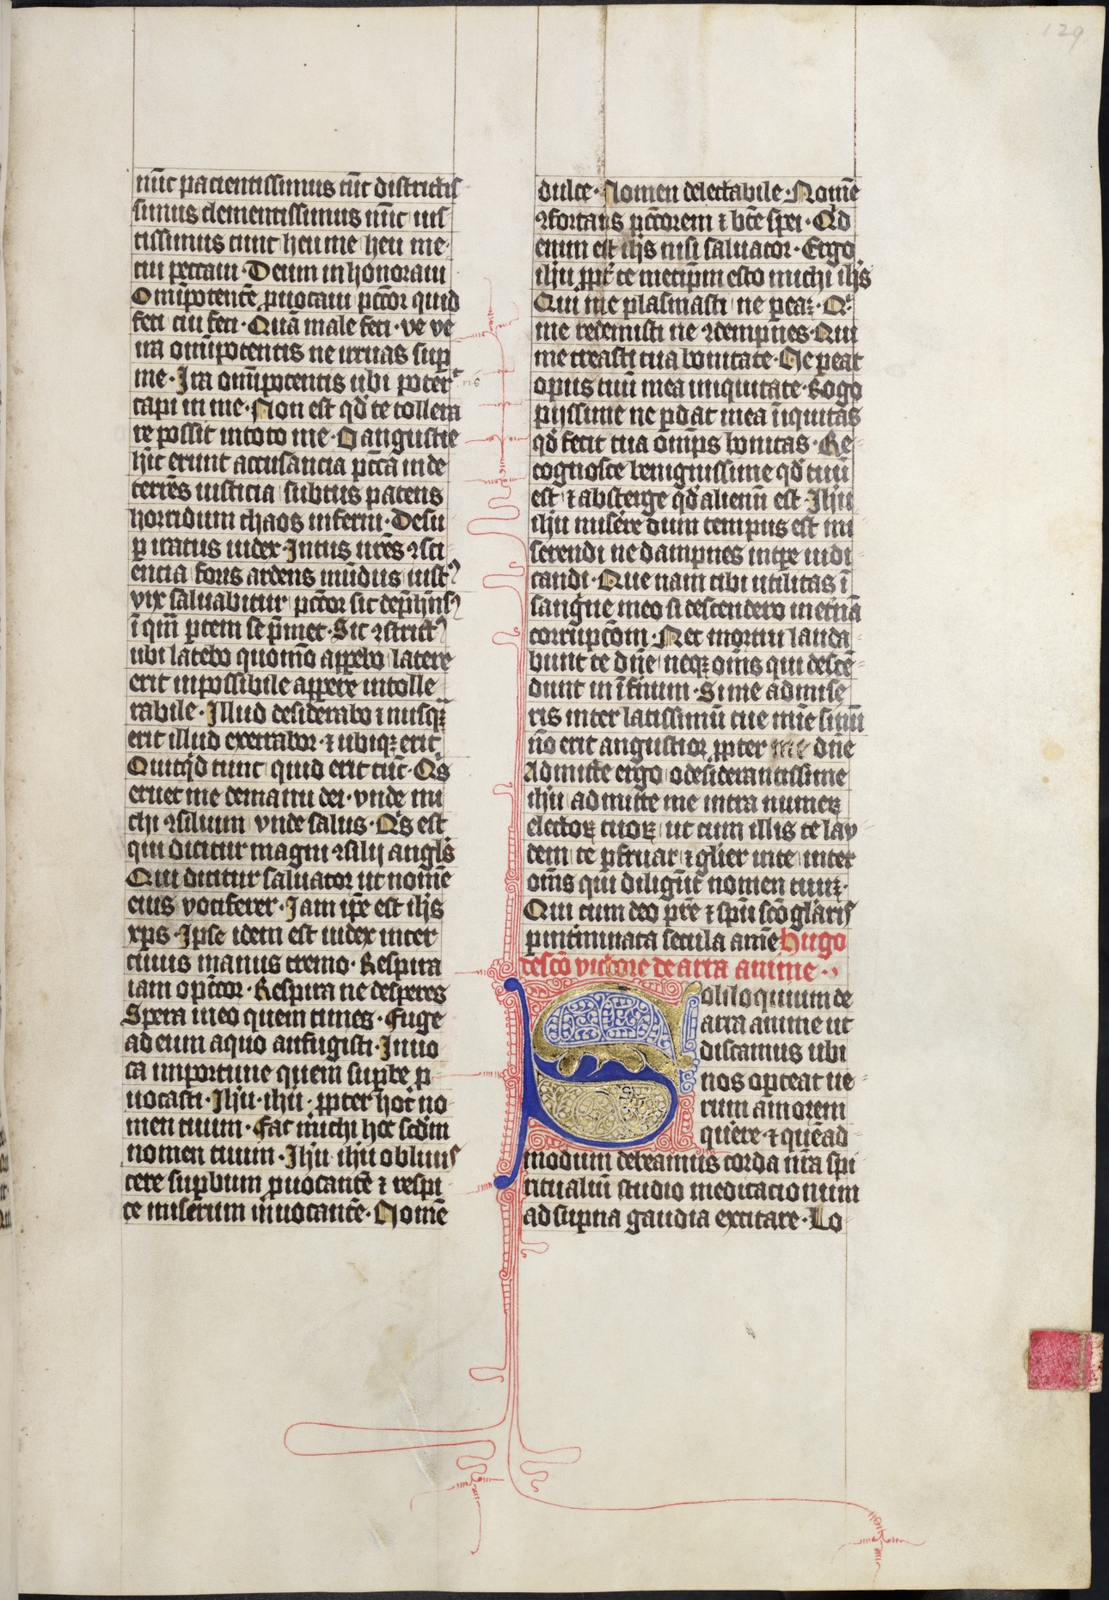 129
nūc pacientissimus tūc districtis
simus clementissimus nūc ius
tissimus tunc heu me heu me
cui peccaui · Deum inhonoraui
Omīpotentē ꝓuocaui pctōr quid
feci cui feci · Quā male feci · ve ve
ira omīpotentis ne irruas suꝑ
me · Ira omīpotentis ubi poter
capi in me · Non est qd̄ te tollera
re possit in toto me · O angustie
hīc erunt accusancia pctā inde
terrēs iusticia subtus patens
horridum chaos inferni · Desu
ꝑ iratus iudex · Intus urēs ꝯsci
encia foris ardens mūdus iustꝰ
vix saluabitur pctōr sic dep̄hīsꝰ
ī qm̄ ꝑtem se p̄met · Sic ꝯstrictꝰ
ubi latebo quomō apꝑebo latere
erit inpossibile apꝑere intolle
rabile · Illud desiderabo ⁊ nusqꝫ
erit illud execrabor · ⁊ ubiqꝫ erit
Quicqd̄ tunc quid erit tūc · Qis
eruet me de manu dei · vnde mi
chi ꝯsilium vnde salus · Qis est
qui dicitur magni ꝯsilij angls̄
Qui dicitur saluator ut nomē
eius vociferer · Iam ip̄e est ihs̄
xps̄ · Ipse idem est iudex inter
cuius manus tremo · Respira
iam o pctōr · Respira ne desperes
Spera in eo quem times · Fuge
ad eum a quo aufugisti · Inuo
ca importune quem suꝑbe ꝓ
uocasti · Ihū · ihū · ꝓpter hoc no
men tuum · Fac michi hoc scdm̄
nomen tuum · Ihū ihū obliuis
cere suꝑbum ꝓuocantē ⁊ respi
ce miserum inuocantē · Nomē
dulce · Nomen delectabile · Nomē
ꝯfortans pctōrem ⁊ btē spei · Qd̄
enim est ihs̄ nisi saluator · Ergo
ihū ꝓpt̄ te metip̄m esto michi ihs̄
Qui me plasmasti ne peaꝫ · Qi
me redemisti ne ꝯdempnes · Qui
me creasti tua bonitate · Ne pereat
opus tuū mea iniquitate · Rogo
pijssime ne ꝑdat mea īiquitas
qd̄ fecit tua omīps bonitas · Re
cognosce benignissime qd̄ tuū
est ⁊ absterge qd̄ alienū est · Ihū
ihū miserē dum tempus est mi
serendi ne dampnes in tꝑe iudi
candi · Que nam tibi utilitas ī
sangūe meo si descendero in et̄nā
corrupcōm · Nec mortui lauda
bunt te dn̄e neqꝫ om̄s qui descē
dunt in īfnum · Si me admise
ris inter latissimū tue mīe sinū
nō erit angustior ꝓpter me dn̄e
Admitte ergo o desiderantissime
ihū admitte me intra numeꝝ
electoꝝ tuoꝝ ut cum illis te lau
dem te ꝑfruar ⁊ glīer in te inter
om̄s qui diligūt nomen tuuꝫ ·
Qui cum deo pr̄e ⁊ spū scō glāris
ꝑ intīminata secula amē Hugo
de scō victore de arra anime ·
Soliloquium de
arra anime ut
discamus ubi
nos oꝑteat ue
rum amorem
querēre · ⁊ quēad
modum debeamus corda nr̄a spi
ritualiū studio meditacionum
ad supna gaudia excitare · Lo